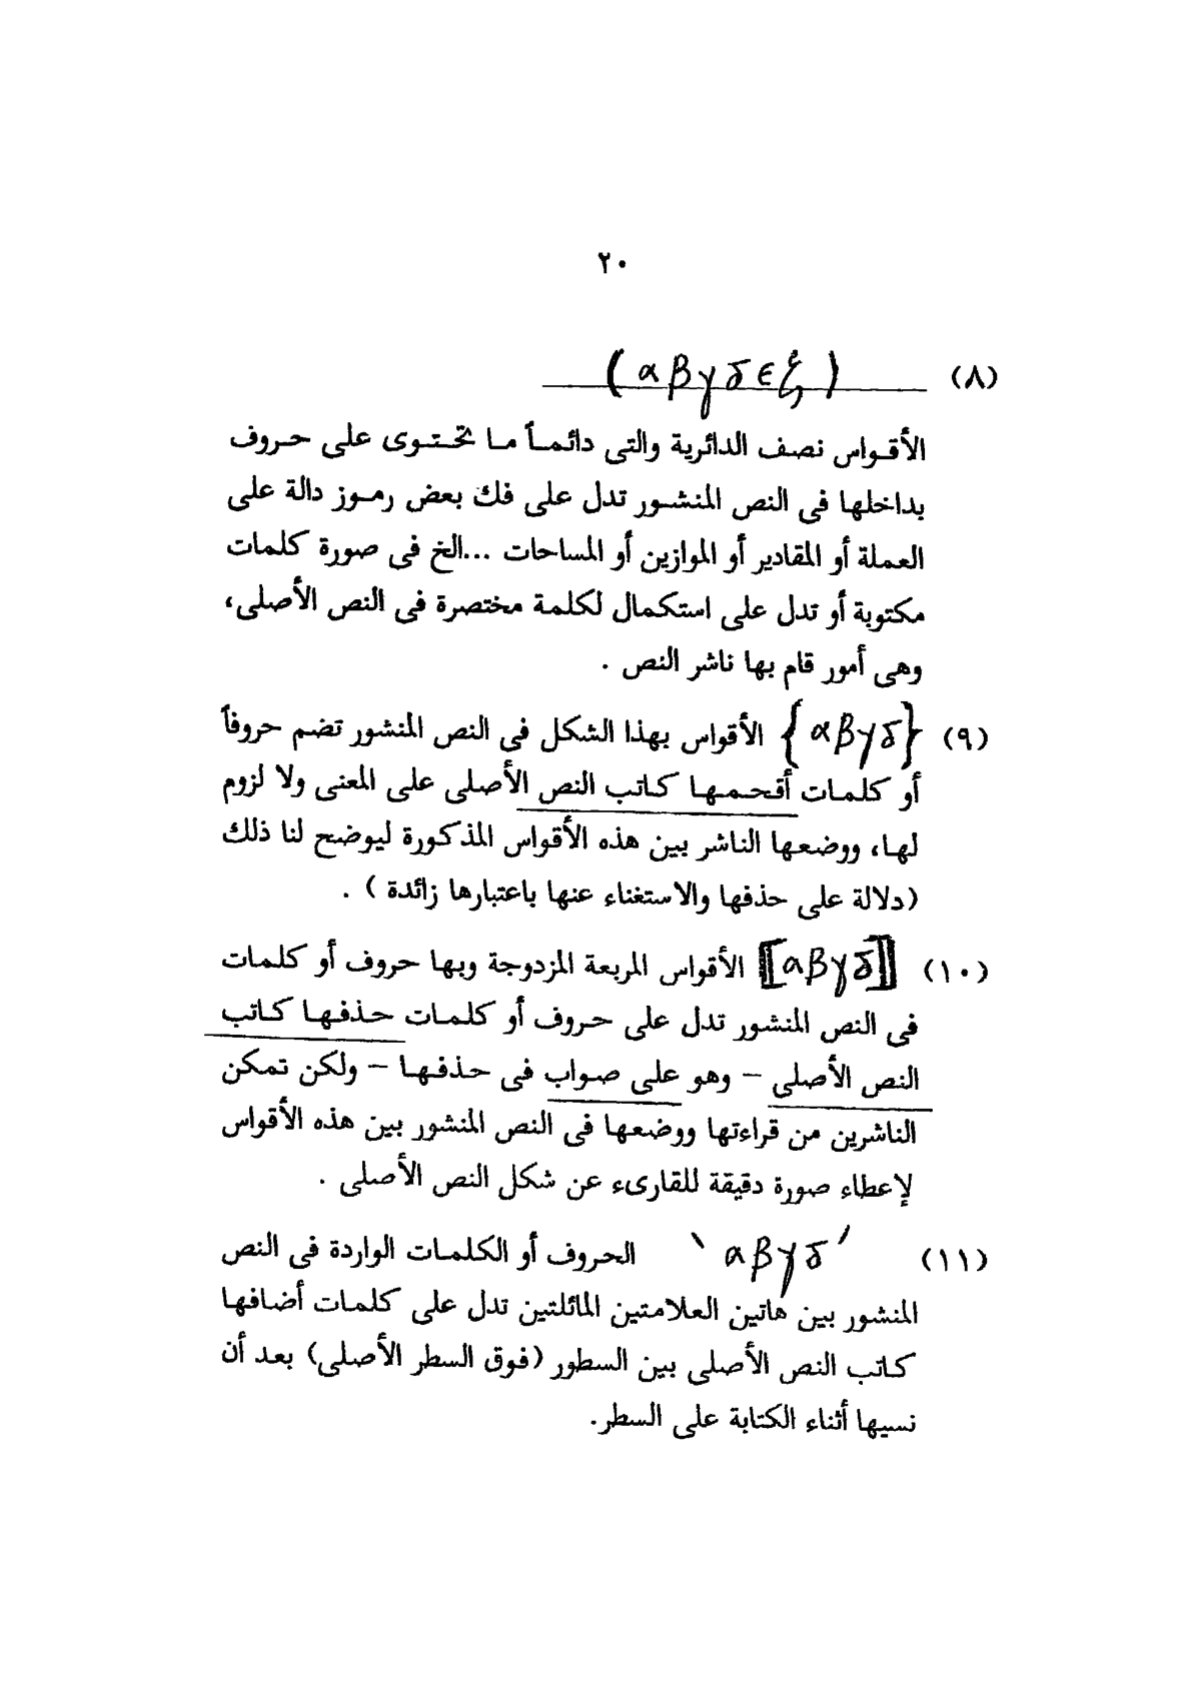 ٢٠
(٨) (αβγδεζ)
الأقواس نصف الدائرية والتى دائماً ما تحتوى على حروف
بداخلها فى النص المنشور تدل على فك بعض رموز دالة على
العملة أو المقادير أو الموازين أو المساحات ...الخ فى صورة كلمات
مكتوبة أو تدل على استكمال لكلمة مختصرة فى النص الأصلى،
وهى أمور قام بها ناشر النص .
(٩) {αβγδ} الأقواس بهذا الشكل فى النص المنشور تضم حروفاً
أو كلمات أقحمها كاتب النص الأصلى على المعنى ولا لزوم
لها، ووضعها الناشر بين هذه الأقواس المذكورة ليوضح لنا ذلك
(دلالة على حذفها والاستغناء عنها باعتبارها زائدة ) .
(١٠) ⟦αβγδ⟧ الأقواس المربعة المزدوجة وبها حروف أو كلمات
فى النص المنشور تدل على حروف أو كلمات حذفها كاتب
النص الأصلى – وهو على صواب فى حذفها – ولكن تمكن
الناشرين من قراءتها ووضعها فى النص المنشور بين هذه الأقواس
لإعطاء صورة دقيقة للقارىء عن شكل النص الأصلى .
(١١) ‵αβγδ′ الحروف أو الكلمات الواردة فى النص
المنشور بين هاتين العلامتين المائلتين تدل على كلمات أضافها
كاتب النص الأصلى بين السطور (فوق السطر الأصلى) بعد أن
نسيها أثناء الكتابة على السطر.